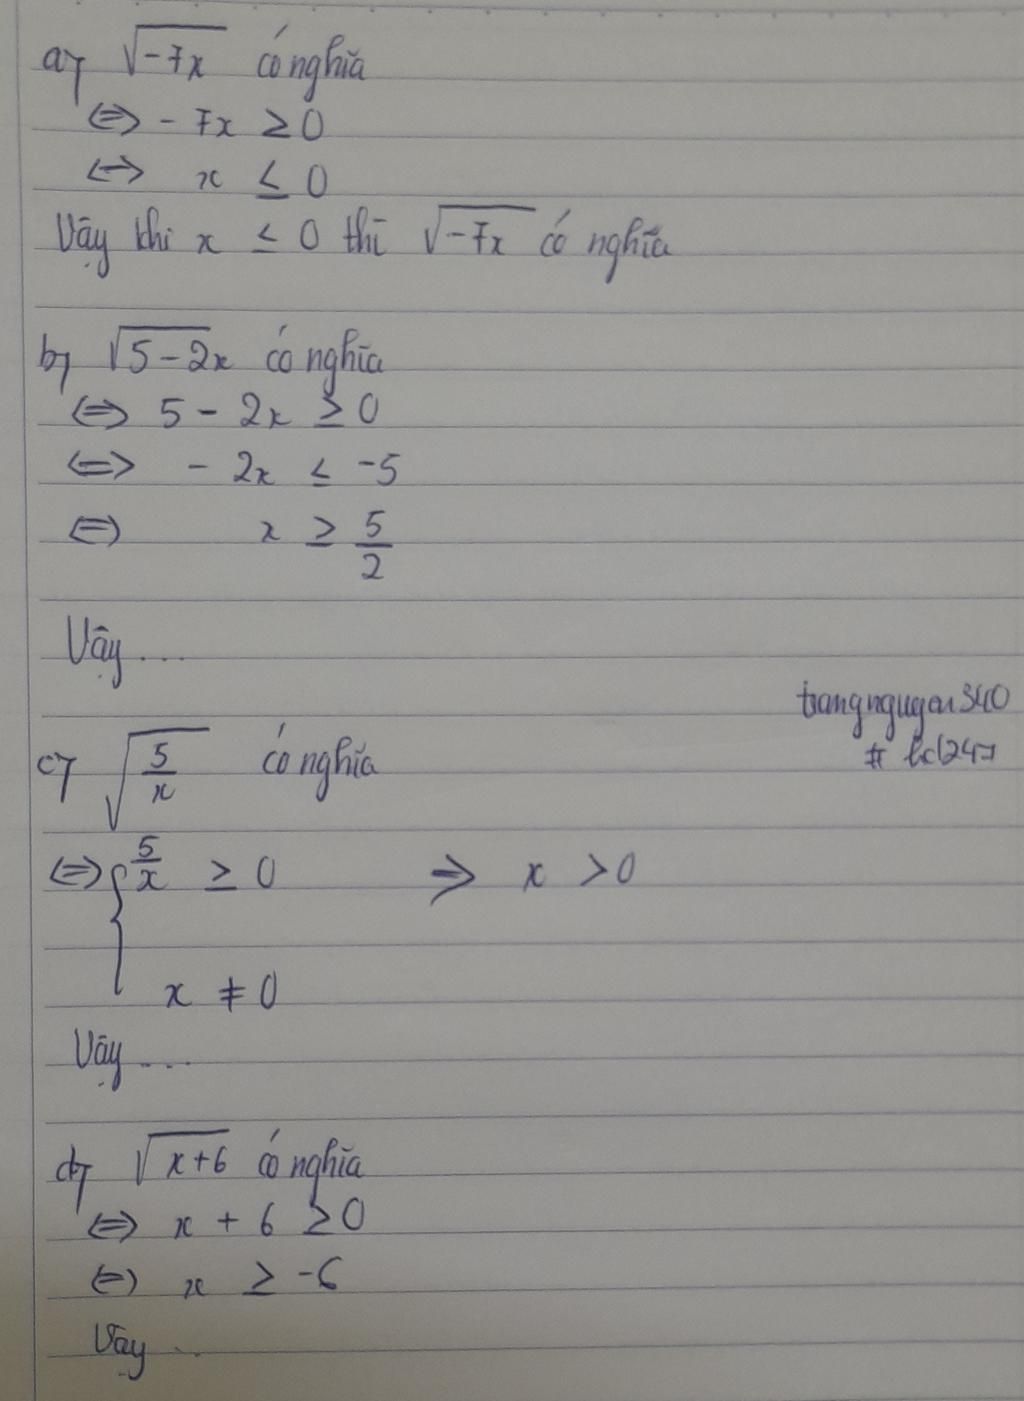 a) √-7x có nghĩa
⇔ -7x ≥ 0
⇔ x ≤ 0
Vậy khi x ≤ 0 thì √-7x có nghĩa
b) √5-2x có nghĩa
⇔ 5 - 2x ≥ 0
⇔ - 2x ≤ -5
⇔ x ≥ 5/2
Vậy ...
trangnguyen340
c) √5/x có nghĩa
⇔ { 5/x ≥ 0 ⇒ x > 0
x ≠ 0
Vậy ...
d) √x+6 có nghĩa
⇔ x + 6 ≥ 0
⇔ x ≥ -6
Vậy ...